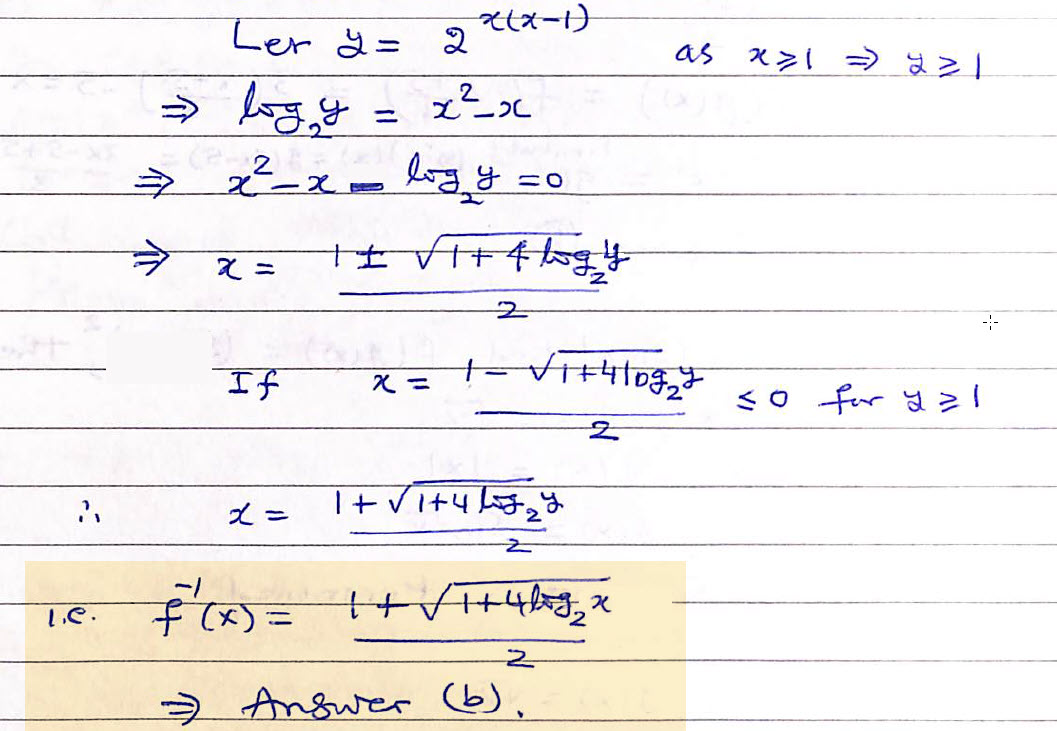 Ler y = 2^{x(x-1)} as x ≥ 1 ⇒ y ≥ 1
⇒ log₂y = x² - x
⇒ x² - x - log₂y = 0
⇒ x = (1 ± √(1 + 4 log₂y)) / 2
If x = (1 - √(1 + 4 log₂y)) / 2 ≤ 0 for y ≥ 1
∴ x = (1 + √(1 + 4 log₂y)) / 2
i.e. f⁻¹(x) = (1 + √(1 + 4 log₂x)) / 2
⇒ Answer (b).